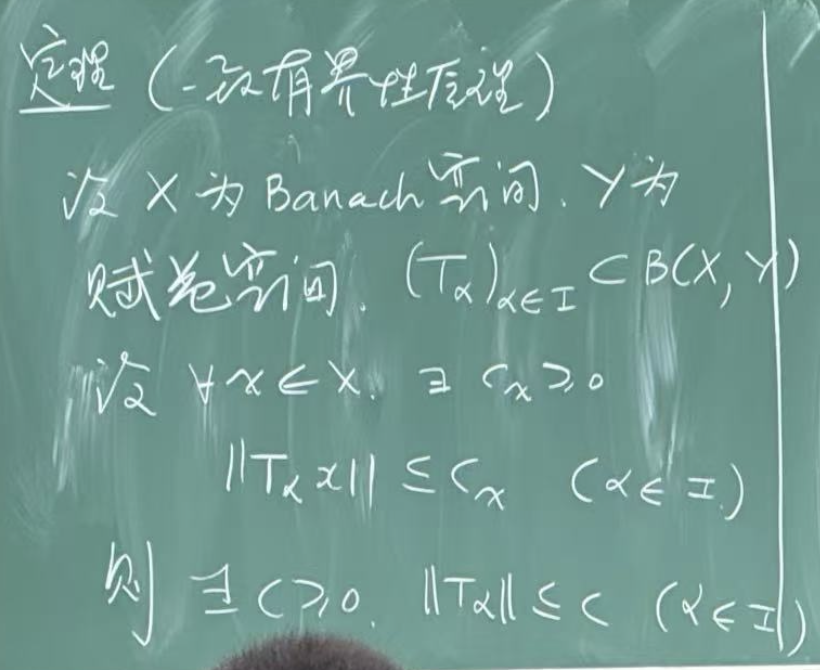 定理 (一致有界性原理)
设 X 为 Banach 空间. Y 为
赋范空间. (T_α)_{α∈I} ⊂ B(X, Y)
设 ∀ x ∈ X. ∃ C_x ≥ 0
‖T_α x‖ ≤ C_x (α ∈ I)
则 ∃ C ≥ 0. ‖T_α‖ ≤ C (α ∈ I)